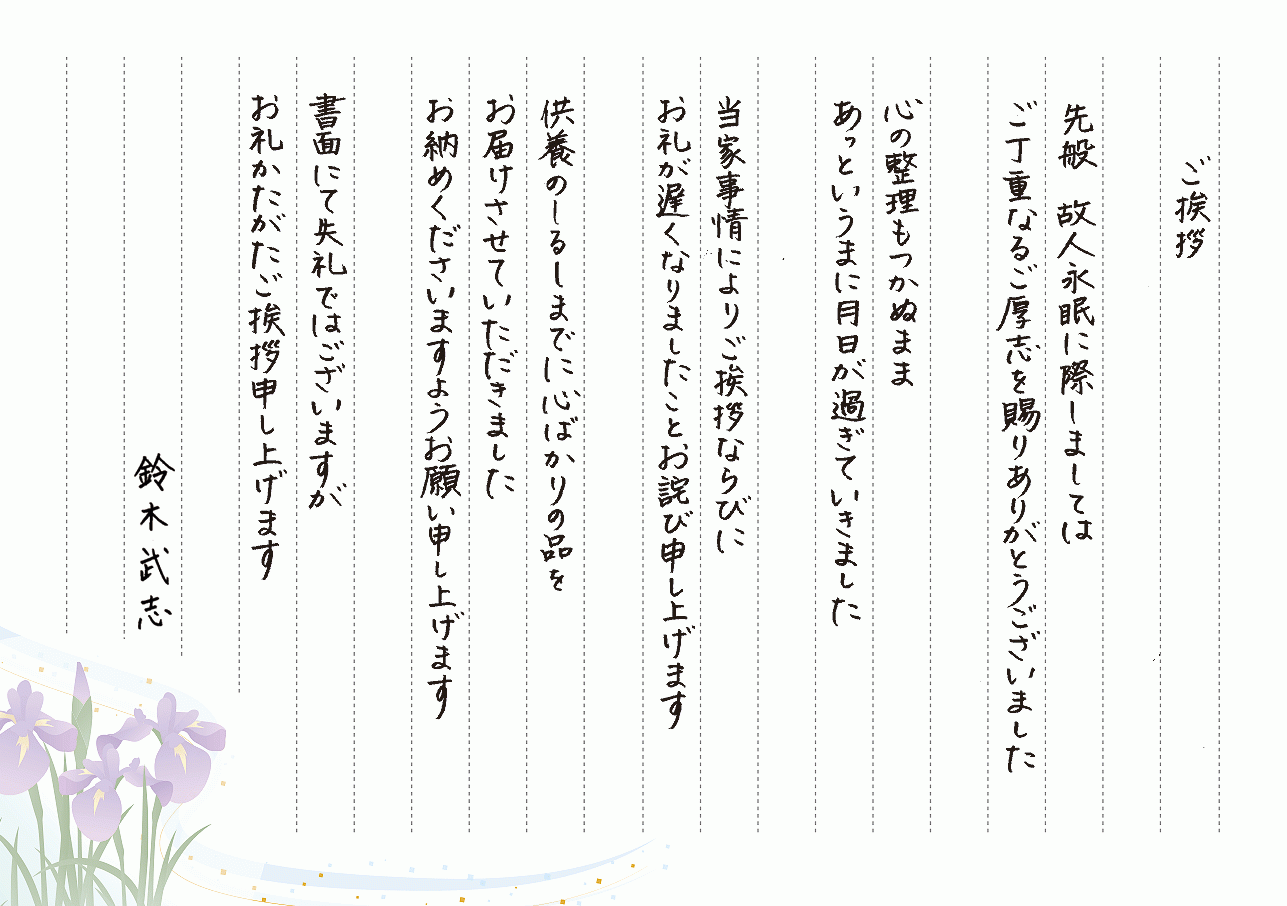 ご挨拶
先般 故人永眠に際しましては
ご丁重なるご厚志を賜りありがとうございました
心の整理もつかぬまま
あっというまに月日が過ぎていきました
当家事情によりご挨拶ならびに
お礼が遅くなりましたことお詫び申し上げます
供養のしるしまでに心ばかりの品を
お届けさせていただきました
お納めくださいますようお願い申し上げます
書面にて失礼ではございますが
お礼かたがたご挨拶申し上げます
鈴木武志